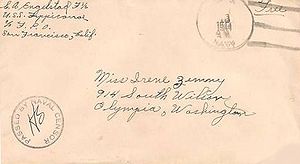 S.A. Engelstad F 1/c
U.S.S. Tippecanoe
c/o F. P. O.
San Francisco, Calif.
Free
Miss Irene Zemny
914 South Wilson
Olympia, Washington
PASSED BY NAVAL CENSOR